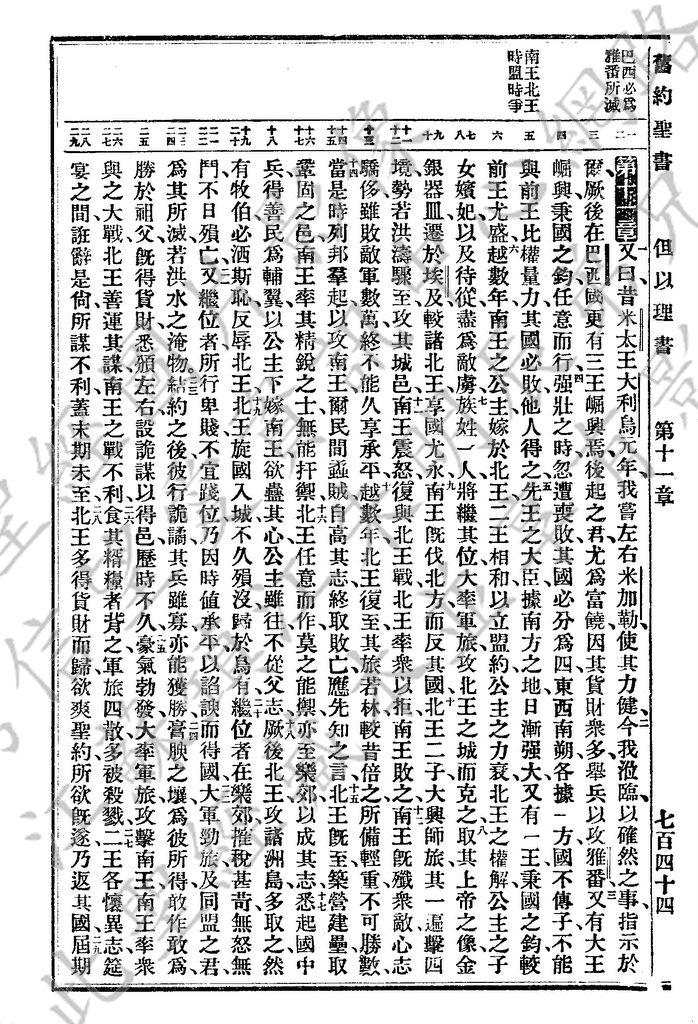 舊約聖書 但以理書 第十一章 七百四十四
巴西必爲
雅番所滅
南王北王
時盟時爭
一二
三
四
五
六
七八
九十
十一
十三
十四
十五
十六
十七
十八
十九
二十
二一
二二
二三
二五
二六
二八
二九
第十一章又曰昔米太王大利烏元年我嘗左右米加勒使其力健今我涖臨以確然之事指示於
爾厥後在巴西國更有三王崛興焉後起之君尤爲富饒因其貨財衆多舉兵以攻雅番又有大王
崛興秉國之鈞任意而行强壯之時忽遭喪敗其國必分爲四東西南朔各據一方國不傳子不能
與前王比權量力其國必敗他人得之先王之大臣據南方之地日漸强大又有一王秉國之鈞較
前王尤盛越數年南王之公主嫁於北王二王相和以立盟約公主之力衰北王之權解公主之子
女嬪妃以及待從盡爲敵虜族姓一人將繼其位大率軍旅攻北王之城而克之取其上帝之像金
銀器皿遷於埃及較諸北王享國尤永南王旣伐北方而反其國北王二子大興師旅其一遍擊四
境勢若洪濤驟至攻其城邑南王震怒復與北王戰北王率衆以拒南王敗之南王旣殲衆敵心志
驕侈雖敗敵軍數萬終不能久享承平越數年北王復至其旅若林較昔倍之所備輕重不可勝數
當是時列邦羣起以攻南王爾民間蟊賊自高其志終取敗亡應先知之言北王旣至築營建壘取
鞏固之邑南王率其精銳之士無能扞禦北王任意而作莫之能禦亦至樂郊以成其志悉起國中
兵得善民爲輔翼以公主下嫁南王欲蠱其心公主雖往不從父志厥後北王攻諸洲島多取之然
有牧伯必洒斯恥反辱北王北王旋國入城不久殞沒歸於烏有繼位者在樂郊摧稅甚苛無怒無
鬥不日殞亡又繼位者所行卑賤不宜踐位乃因時値承平以諂諛而得國大軍勁旅及同盟之君
爲其所滅若洪水之淹物結約之後彼行詭譎其兵雖寡亦能獲勝膏腴之壤爲彼所得敢作敢爲
勝於祖父旣得貨財悉頒左右設詭謀以得邑歷時不久豪氣勃發大率軍旅攻擊南王南王率衆
與之大戰北王善運其謀南王之戰不利食其糈糧者背之軍旅四散多被殺戮二王各懷異志筵
宴之間誑辭是尙所謀不利蓋末期未至北王多得貨財而歸欲爽聖約所欲旣遂乃返其國屆期